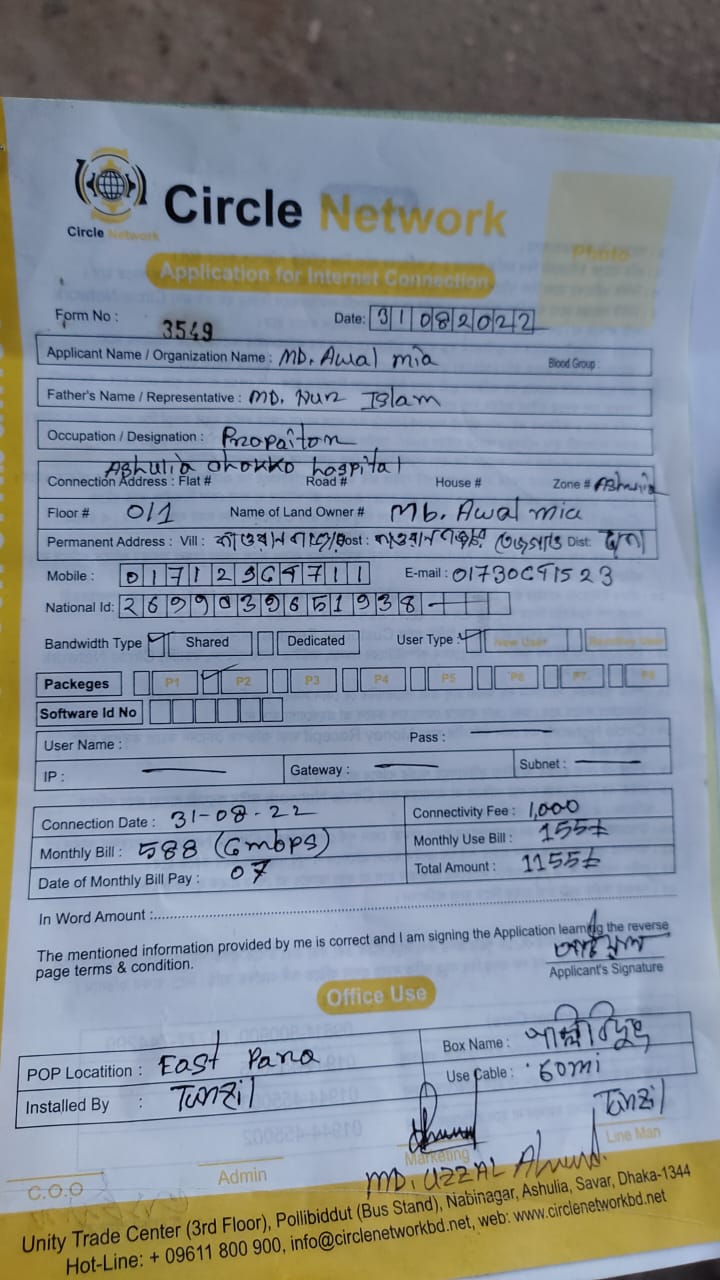 Circle Network
Circle Network
Photo
Application for Internet Connection
Form No : 3549 Date: 31082022
Applicant Name / Organization Name : MD. Awal mia Blood Group :
Father's Name / Representative : MD. Nur Islam
Occupation / Designation : Propaiton
Ashulia chokko hospital
Connection Address : Flat # Road # House # Zone # Ashulia
Floor # 0/1 Name of Land Owner # Mb. Awal mia
Permanent Address : Vill : Post : Dist:
Mobile : E-mail :
National Id: 2699039651938
Bandwidth Type Shared Dedicated User Type : New User
Packeges P1 P2 P3 P4 P5 P6 P7 P8
Software Id No
User Name : Pass :
IP : Gateway : Subnet :
Connection Date : 31-08-22 Connectivity Fee : 1,000
Monthly Bill : 588 (6mbps) Monthly Use Bill : 155
Date of Monthly Bill Pay : 07 Total Amount : 1155
In Word Amount :
The mentioned information provided by me is correct and I am signing the Application learning the reverse
page terms & condition.
Applicant's Signature
Office Use
POP Locatition : East Para Box Name :
Installed By : Tanzil Use Cable : 60mi
Tanzil
C.O.O Admin Marketing Line Man
MD. UZZAL Ahmed.
Unity Trade Center (3rd Floor), Pollibiddut (Bus Stand), Nabinagar, Ashulia, Savar, Dhaka-1344
Hot-Line: + 09611 800 900, info@circlenetworkbd.net, web: www.circlenetworkbd.net